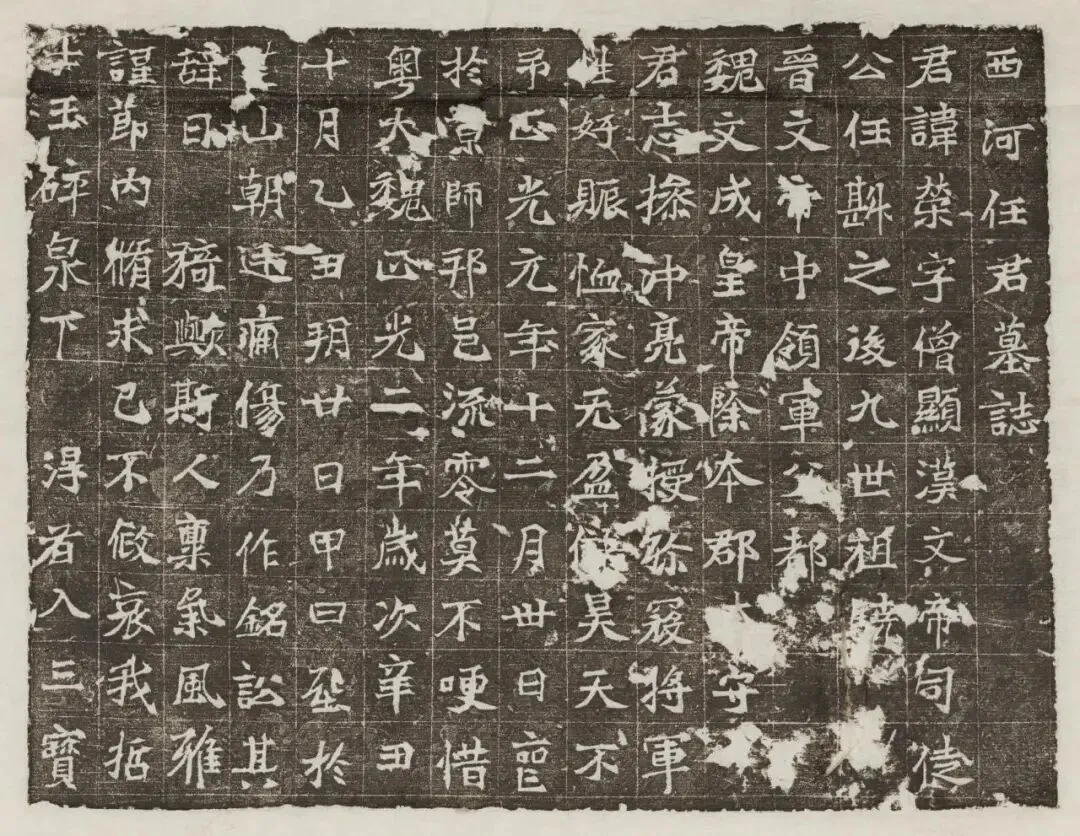 西河任君墓誌
君諱榮字僧顯漢文帝司徒
公任斟之後九世祖曉
晉文帝中領軍公都
魏文成皇帝除本郡太守
君志操沖亮蒙授綏寇將軍
性好賑恤家无盈儲昊天不
弔正光元年十二月卅日亡
於京師邦邑流零莫不哽惜
粵大魏正光二年歲次辛丑
十月乙丑朔廿日甲曰窆於
芒山朝迋痛傷乃作銘訟其
辭曰 猗歟斯人稟氣風雅
謹節內脩求己不倣哀我哲
士玉碎泉下 淂者入三寶